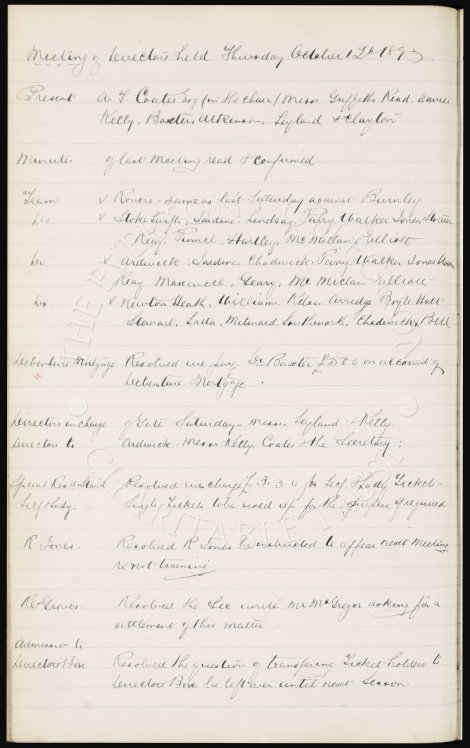 Meeting of Directors held Thursday October 12th 1893.
Present A. T. Coates Esq (in the chair) Messrs Griffiths Read, Davies
Kelly, Baxter, Atkinson, Leyland & Clayton
Minutes of last Meeting read & confirmed
Team v Rovers - same as last Saturday against Burnley
Do v Stoke Swifts: Jardine: Lindsay, Parry, Walker Jones Storrier
Reay, Pinnel, Hartley, McMillan, Elliott
Do v Ardwick: Jardine, Chadwick Parry, Walker Jones
Reay, Maxwell, Geary, Mc Millan Elliott
Do v Newton Heath: Williams, Kelso, Arridge Boyle Holt
Stewart, Latta, Milward, Southworth, Chadwick, Bell
Debenture Mortgage Resolved we pay Dr Baxter £500 on account of
Debenture Mortgage.
Directors in charge of Gate Saturday - Messrs Leyland & Kelly.
Directors to Ardwick: Messrs Kelly, Coates & the Secretary:
Special Res'd Stand Resolved we charge £ 3. 3. 0 for Lady Tickets -
Single Tickets to be used up for the purpose if required
R Jones. Resolved R Jones be instructed to appear next Meeting
re not training
Re Groves. Resolved the Sec write Mr McGregor asking for a
settlement of this matter.
Admission to
Directors Box Resolved the question of transfering Ticket holders to
Directors Box be left over until next Season.
THE
CHARITABLE